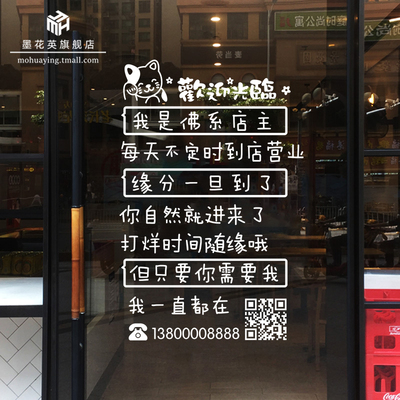 墨花英旗舰店
mohuaying.tmall.com
歡迎光臨
我是佛系店主
每天不定时到店营业
缘分一旦到了
你自然就进来了
打烊时间随缘哦
但只要你需要我
我一直都在
13800008888